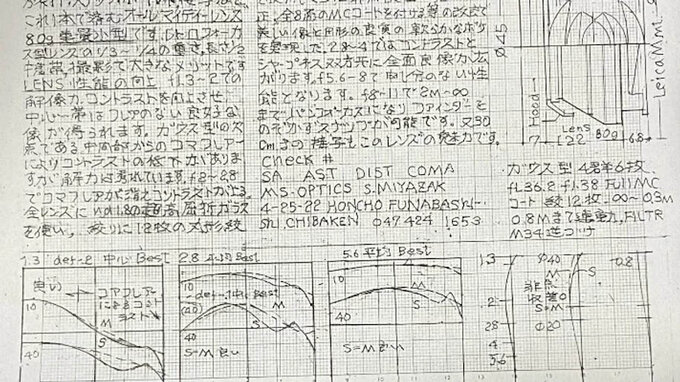 これ1本で済むオールマイティーレンズ
80g 軽量小型です。レトロフォーカス
型レンズの1/3~1/4の重さ、長さ1/2
撮影で大きなメリットです
LENS 性能の向上 f1.3~2での
解像力、コントラストを向上させ
中心一帯はフレアのない良好な
像が得られます。ガウス型の欠
点である中間部からのコマフレアー
によりコントラストの低下がありま
すが解像力は f2~2.8
でコマフレアが消えコントラストが上る。
全レンズに nd1.8の超高屈折ガラス
を使い、絞りに12枚の円形絞
正、全8面のMCコートを付ける等の改良で
美しい像と円形の良質の軟らかなボケ
を実現した。2.8-4ではコントラストと
シャープネス双方共に全面良像が広
がります。f5.6-8で申し分のない性
能となります。f8-11で2M-∞
までパンフォーカスになりファインダーを
のぞかずスナップが可能です。又30
cmの接写もこのレンズの魅力です。
Check #
SA AST DIST COMA
MS-OPTICS S.MIYAZAK
4-25-22 HONCHO FUNABASHI-
SHI.CHIBAKEN ф47 424 1653
ф45
Hood
Lens 80g
7 22 6.8
LeicaMmt
ガウス型 4群6枚
fL36.2 f1.38 FullMC
コート 絞12枚 ∞~0.3m
0.8Mまで連動, FILTR
M34逆つけ
1.3 def-2 中心Best
良い
コマフレアー
によるコント
ラスト
M
S
10
40
2.8 平均Best
10
def 中心Best
(20)
M
S
40
S=M 良い
5.6 平均Best
10
M
S
40
S=M
1.3
2
28
4
5.6
ф40
M
S
非点
収差0
S=M
ф20
0.8